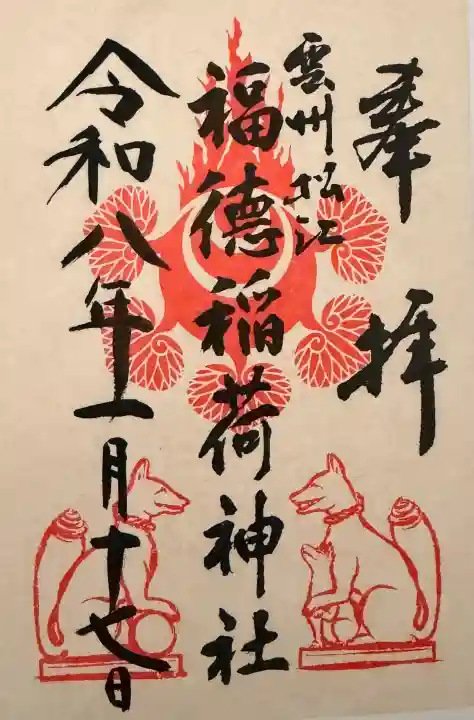 奉拝
雲州松江
福徳稲荷神社
令和八年一月十七日